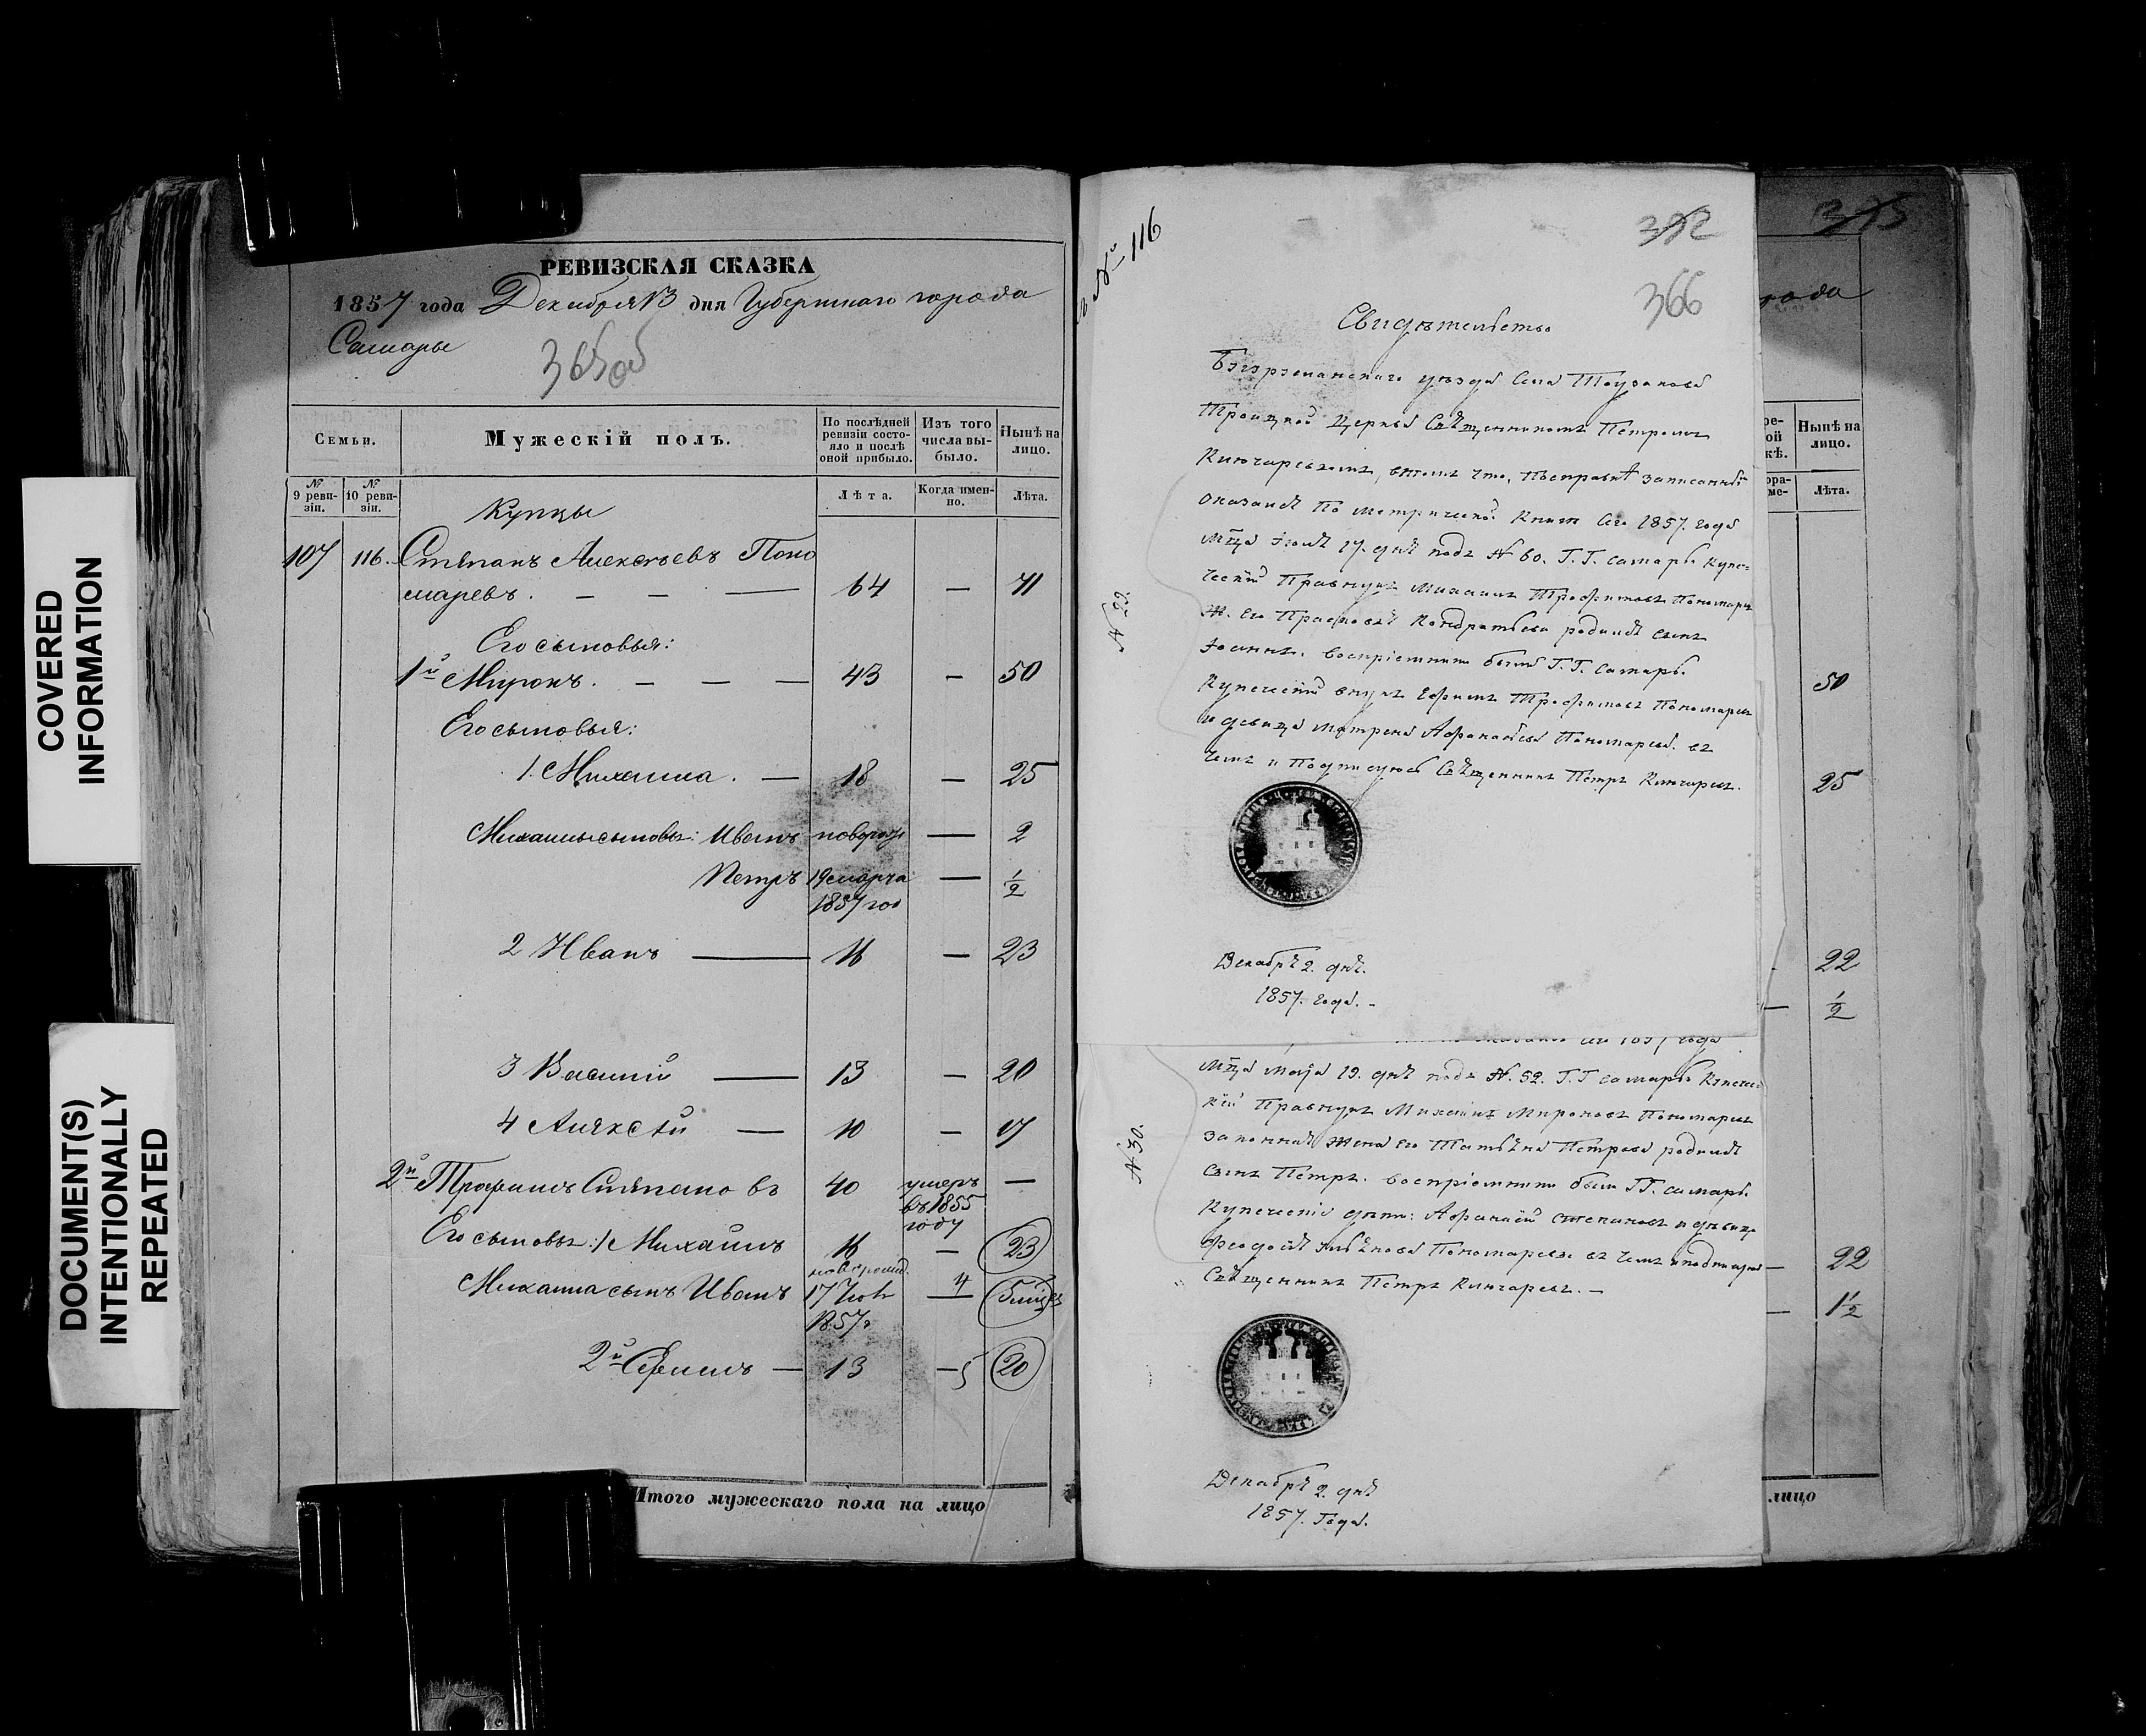 COVERED
INFORMATION
DOCUMENT(S)
INTENTIONALLY
REPEATED
РЕВИЗСКАЯ СКАЗКА
1857 года Декабря 13 дня Губернскаго города
Самары
365об
Семьи.
Мужескій полъ.
По послѣдней ревизіи состояло и послѣ оной прибыло.
Изъ того числа выбыло.
Нынѣ на лицо.
№ 9 ревизіи.
№ 10 ревизіи.
Лѣта.
Когда именно.
Лѣта.
Купцы
107 116. Степанъ Алексѣевъ Поно
маревъ. — — — 64 — 71
Его сыновья:
1й Миронъ. — — — 43 — 50
Его сыновья:
1. Михаила. — 18 — 25
Михаилы сыновья: Иванъ новорож — 2
Петръ 19 марта — ½
1857 год
2 Иванъ — 16 — 23
3 Василій — 13 — 20
4 Алексѣй — 10 — 17
2й Трофимъ Степановъ 40 умеръ —
въ 1855
году
Его сыновья: 1 Михаилъ 16 — 23
новорожд.
Михаила сынъ Иванъ 17 Июня 4
1857г
2й Ефимъ — 13 — 5 20
Итого мужескаго пола на лицо
№ 116
382
366
Свидѣтельство
Бугурусланскаго уѣзда Села
Троицкой Церкви Священникомъ Петромъ
въ томъ что, по справкѣ записанной
оказалось По метрической Книгѣ сего 1857. года
мца Іюня 17. дня подъ № 60. Г. Г. Самары Купе-
ческій Правнукъ Михаилъ Трофимовъ Пономаре
Ж. его Прасковья Кондратьева родила сынъ
Іоаннъ. воспріемники были Г. Г. Самары.
Купеческій внукъ Ефимъ Трофимовъ Пономарев
и девица Матрена Афанасьева Пономарева. въ
чемъ и Подписуюсь Священникъ Петръ
№ 29.
Декабря 2. дня.
1857. года. -
сего 1857 года
мца Маія 19. дня подъ №. 52. Г. Г Самары Купечес
кій Правнукъ Михаилъ Мироновъ Пономарев
законная Жена его Татьяна Петрова родила
сынъ Петръ. воспріемники были ГГ. Самары.
Купеческіе дѣти: Афанасій Степановъ и дѣвица
Пономарева въ чемъ и подписуюсь
Священникъ Петръ
№ 30.
Декабря 2. дня
1857. Года.
375
года
Нынѣ на лицо.
Лѣта.
50
25
22
½
22
1½
лицо